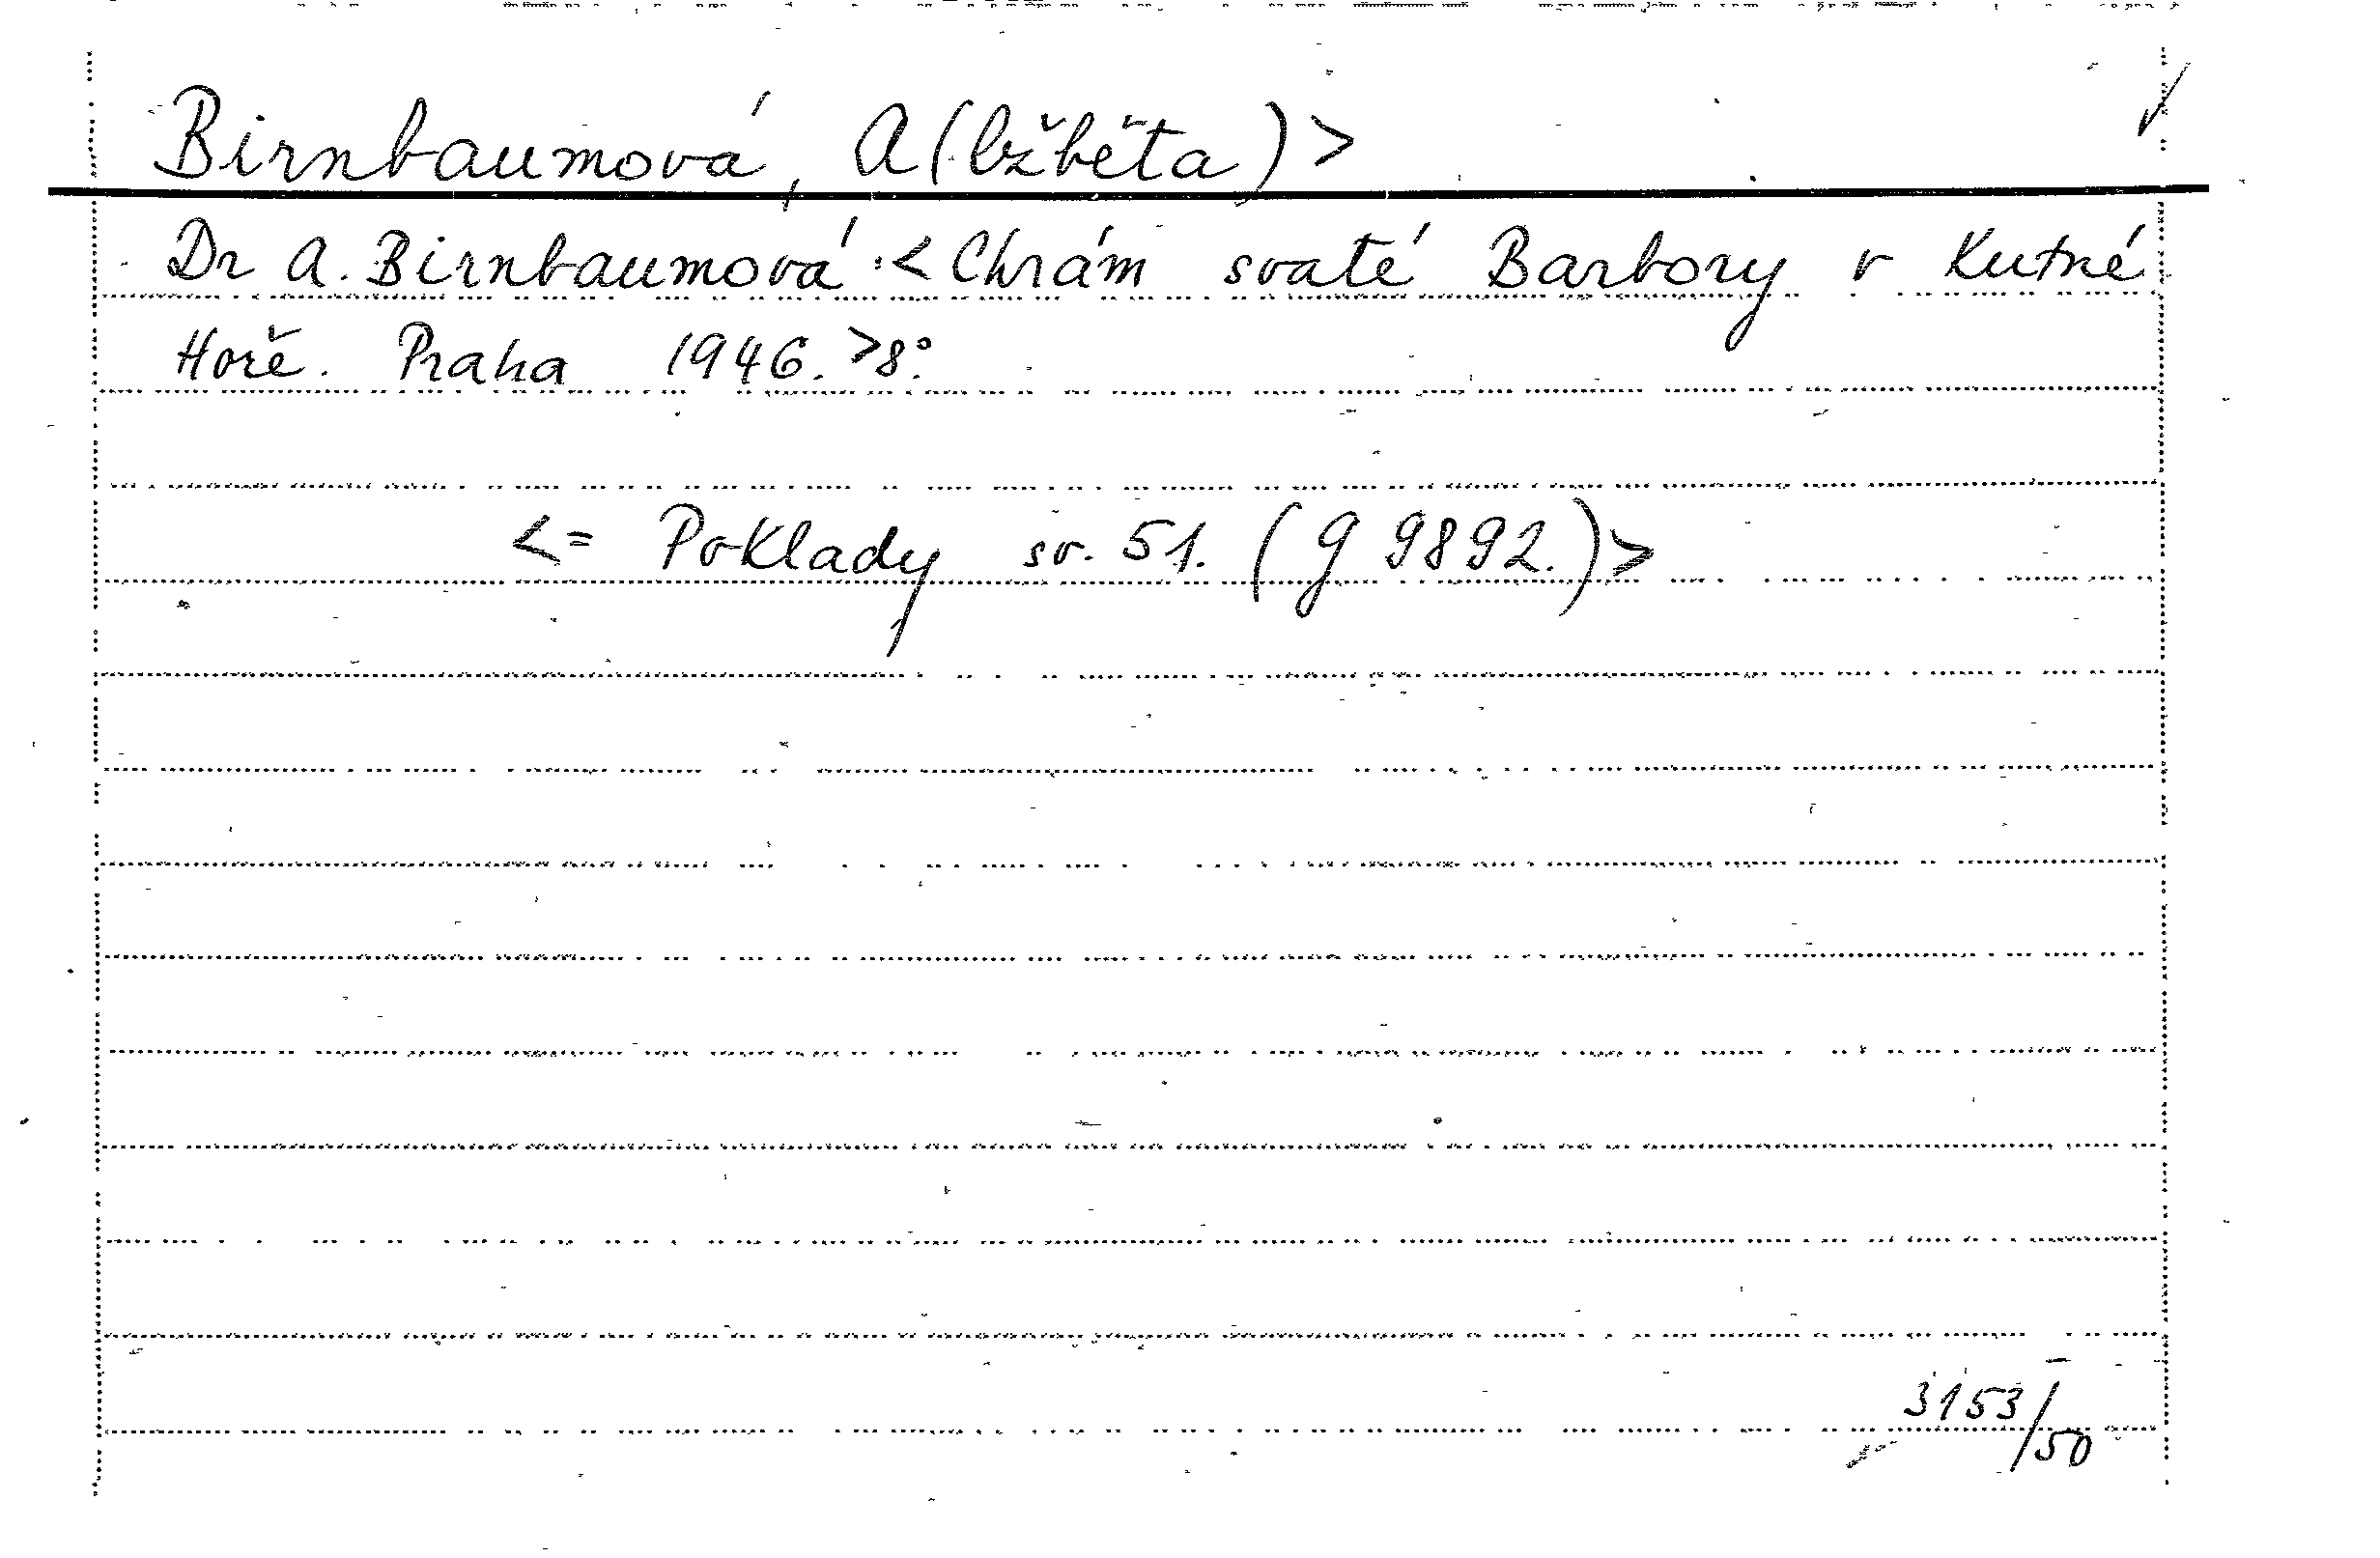 Birnbaumová, A(lžběta)>
Dr A. Birnbaumová:<Chrám svaté Barbory v Kutné
Hoře. Praha 1946.>8°.
<= Poklady sv. 51. (g 9892.)>
3153/50